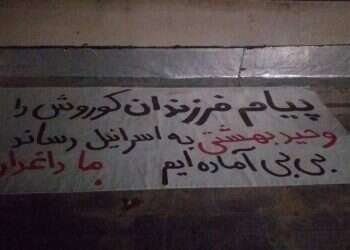 پیام فرزندان کوروش را
وحید بهشتی به اسرائیل رساند
بی بی آماده ایم ما داغدار